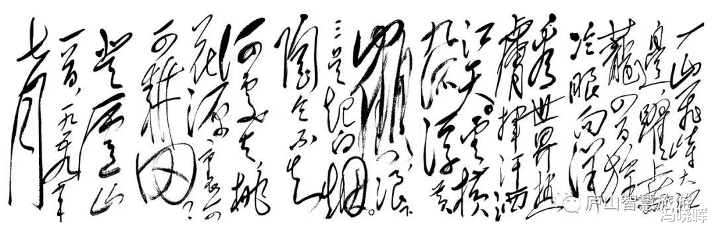 一山飛峙大江
邊，躍上葱
蘢四百旋
冷眼向洋
看世界，热
膚揮汗洒
江天。雲横
九派浮黄
鶴，浪下
三吴起白烟。
陶令不知
何處去，桃
花源
可耕田？
登廬山
一九五九年
七月
庐山智慧旅游
冯晓晖